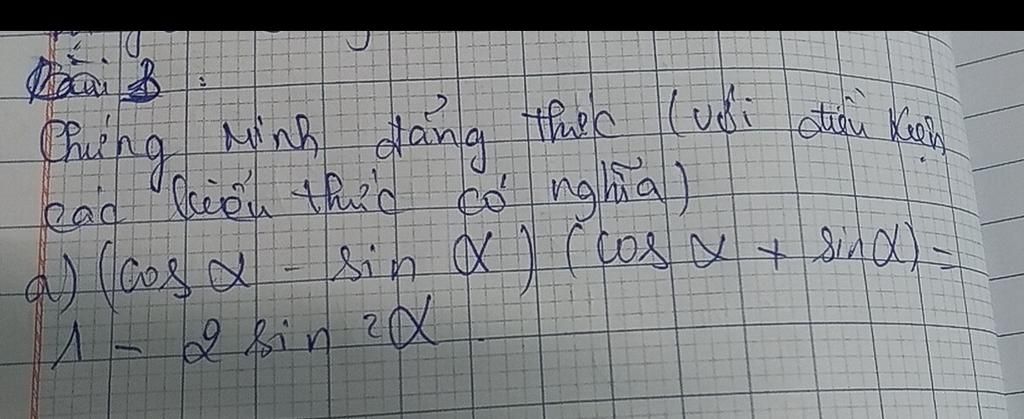 Bài 3 :
Chứng minh đẳng thức (với điều kiện
các biểu thức có nghĩa)
a) (cos α - sin α) (cos α + sin α) =
1 - 2 sin ²α